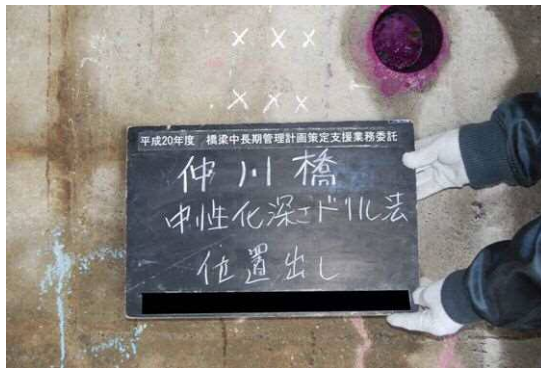 × × ×
× × ×
平成20年度 橋梁中長期管理計画策定支援業務委託
仲川橋
中性化深さドリル法
位置出し